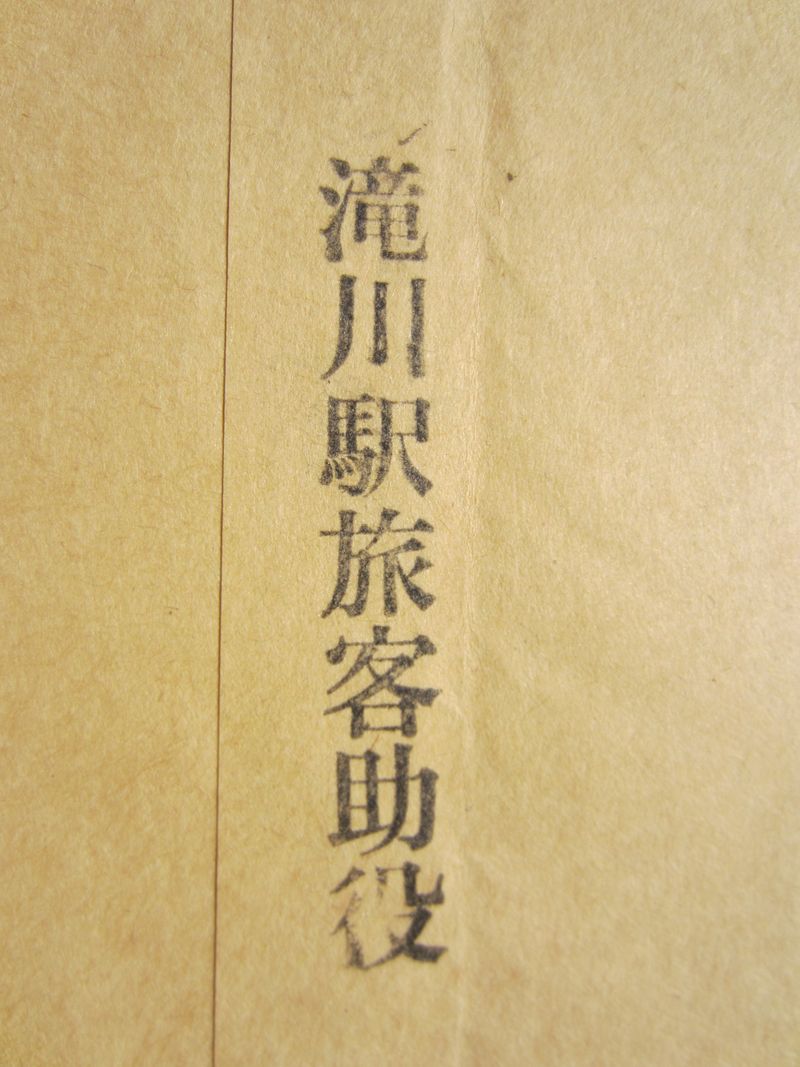 滝川駅旅客助役